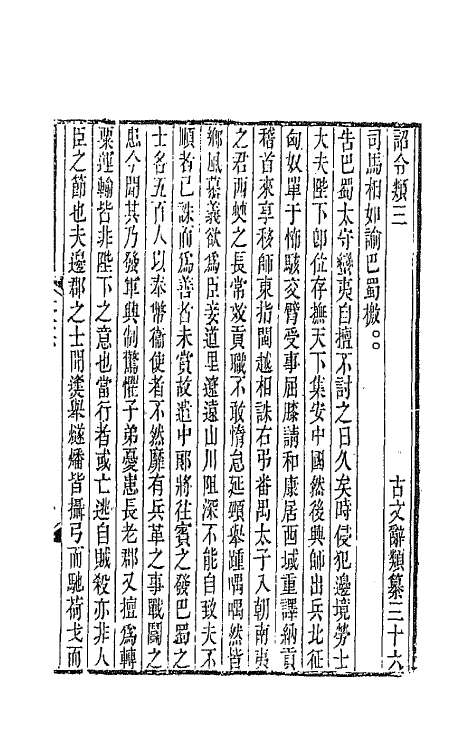 詔令類三　古文辭類纂三十六
司馬相如諭巴蜀檄○○
告巴蜀太守蠻夷自擅不討之日久矣時侵犯邊境勞士
大夫陛下卽位存撫天下集安中國然後興師出兵北征
匈奴單于怖駭交臂受事屈膝請和康居西域重譯納貢
稽首來享移師東指閩越相誅右弔番禺太子入朝南夷
之君西僰之長常效貢職不敢惰怠延頸舉踵喁喁然皆
鄉風慕義欲爲臣妾道里遼遠山川阻深不能自致夫不
順者已誅而爲善者未賞故遣中郎將往賓之發巴蜀之
士各五百人以奉幣衞使者不然靡有兵革之事戰鬬之
患今聞其乃發軍興制驚懼子弟憂患長老郡又擅爲轉
粟運輸皆非陛下之意也當行者或亡逃自賊殺亦非人
臣之節也夫邊郡之士聞㷭舉燧燔皆攝弓而馳荷戈而